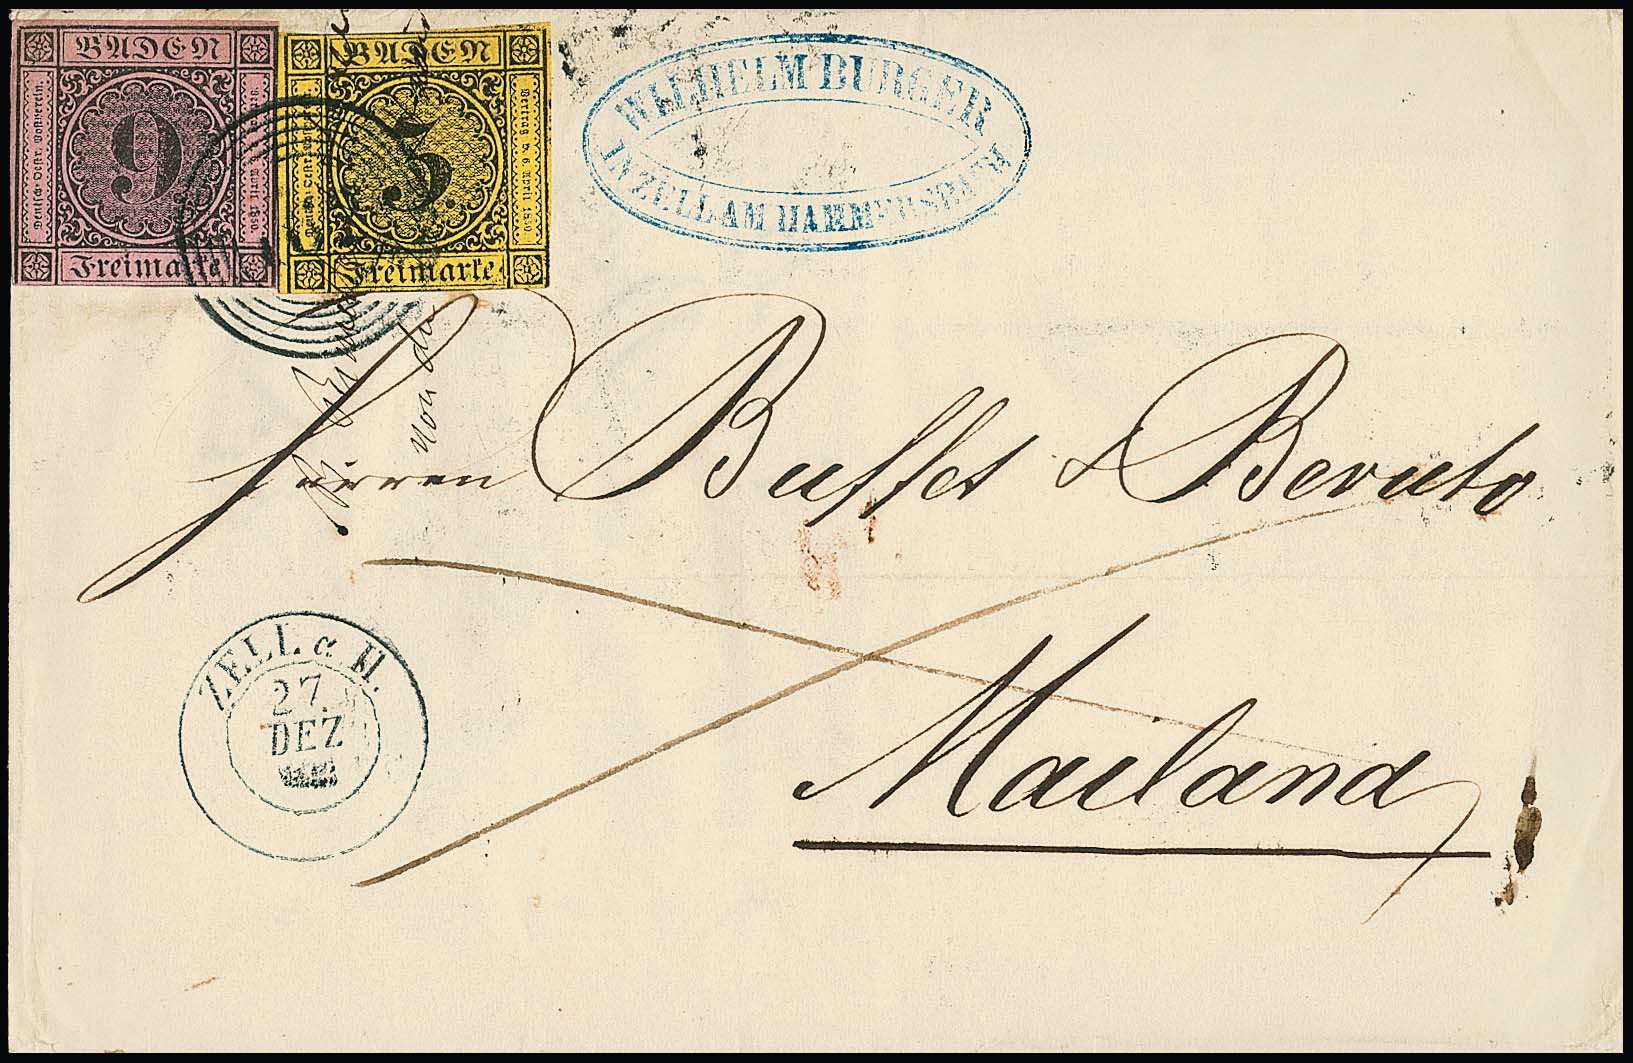 BADEN
Deutsch-Oestr. Postverein.
9
Vertrag v. 6. April 1850.
Freimarke
BADEN
3.
Vertrag v. 6. April 1850.
Freimarke
WILHELM BURGER
IN ZELL AM HAMMERSBACH
Herren Buffet & Beruto
Mailand
ZELL a H.
27.
DEZ